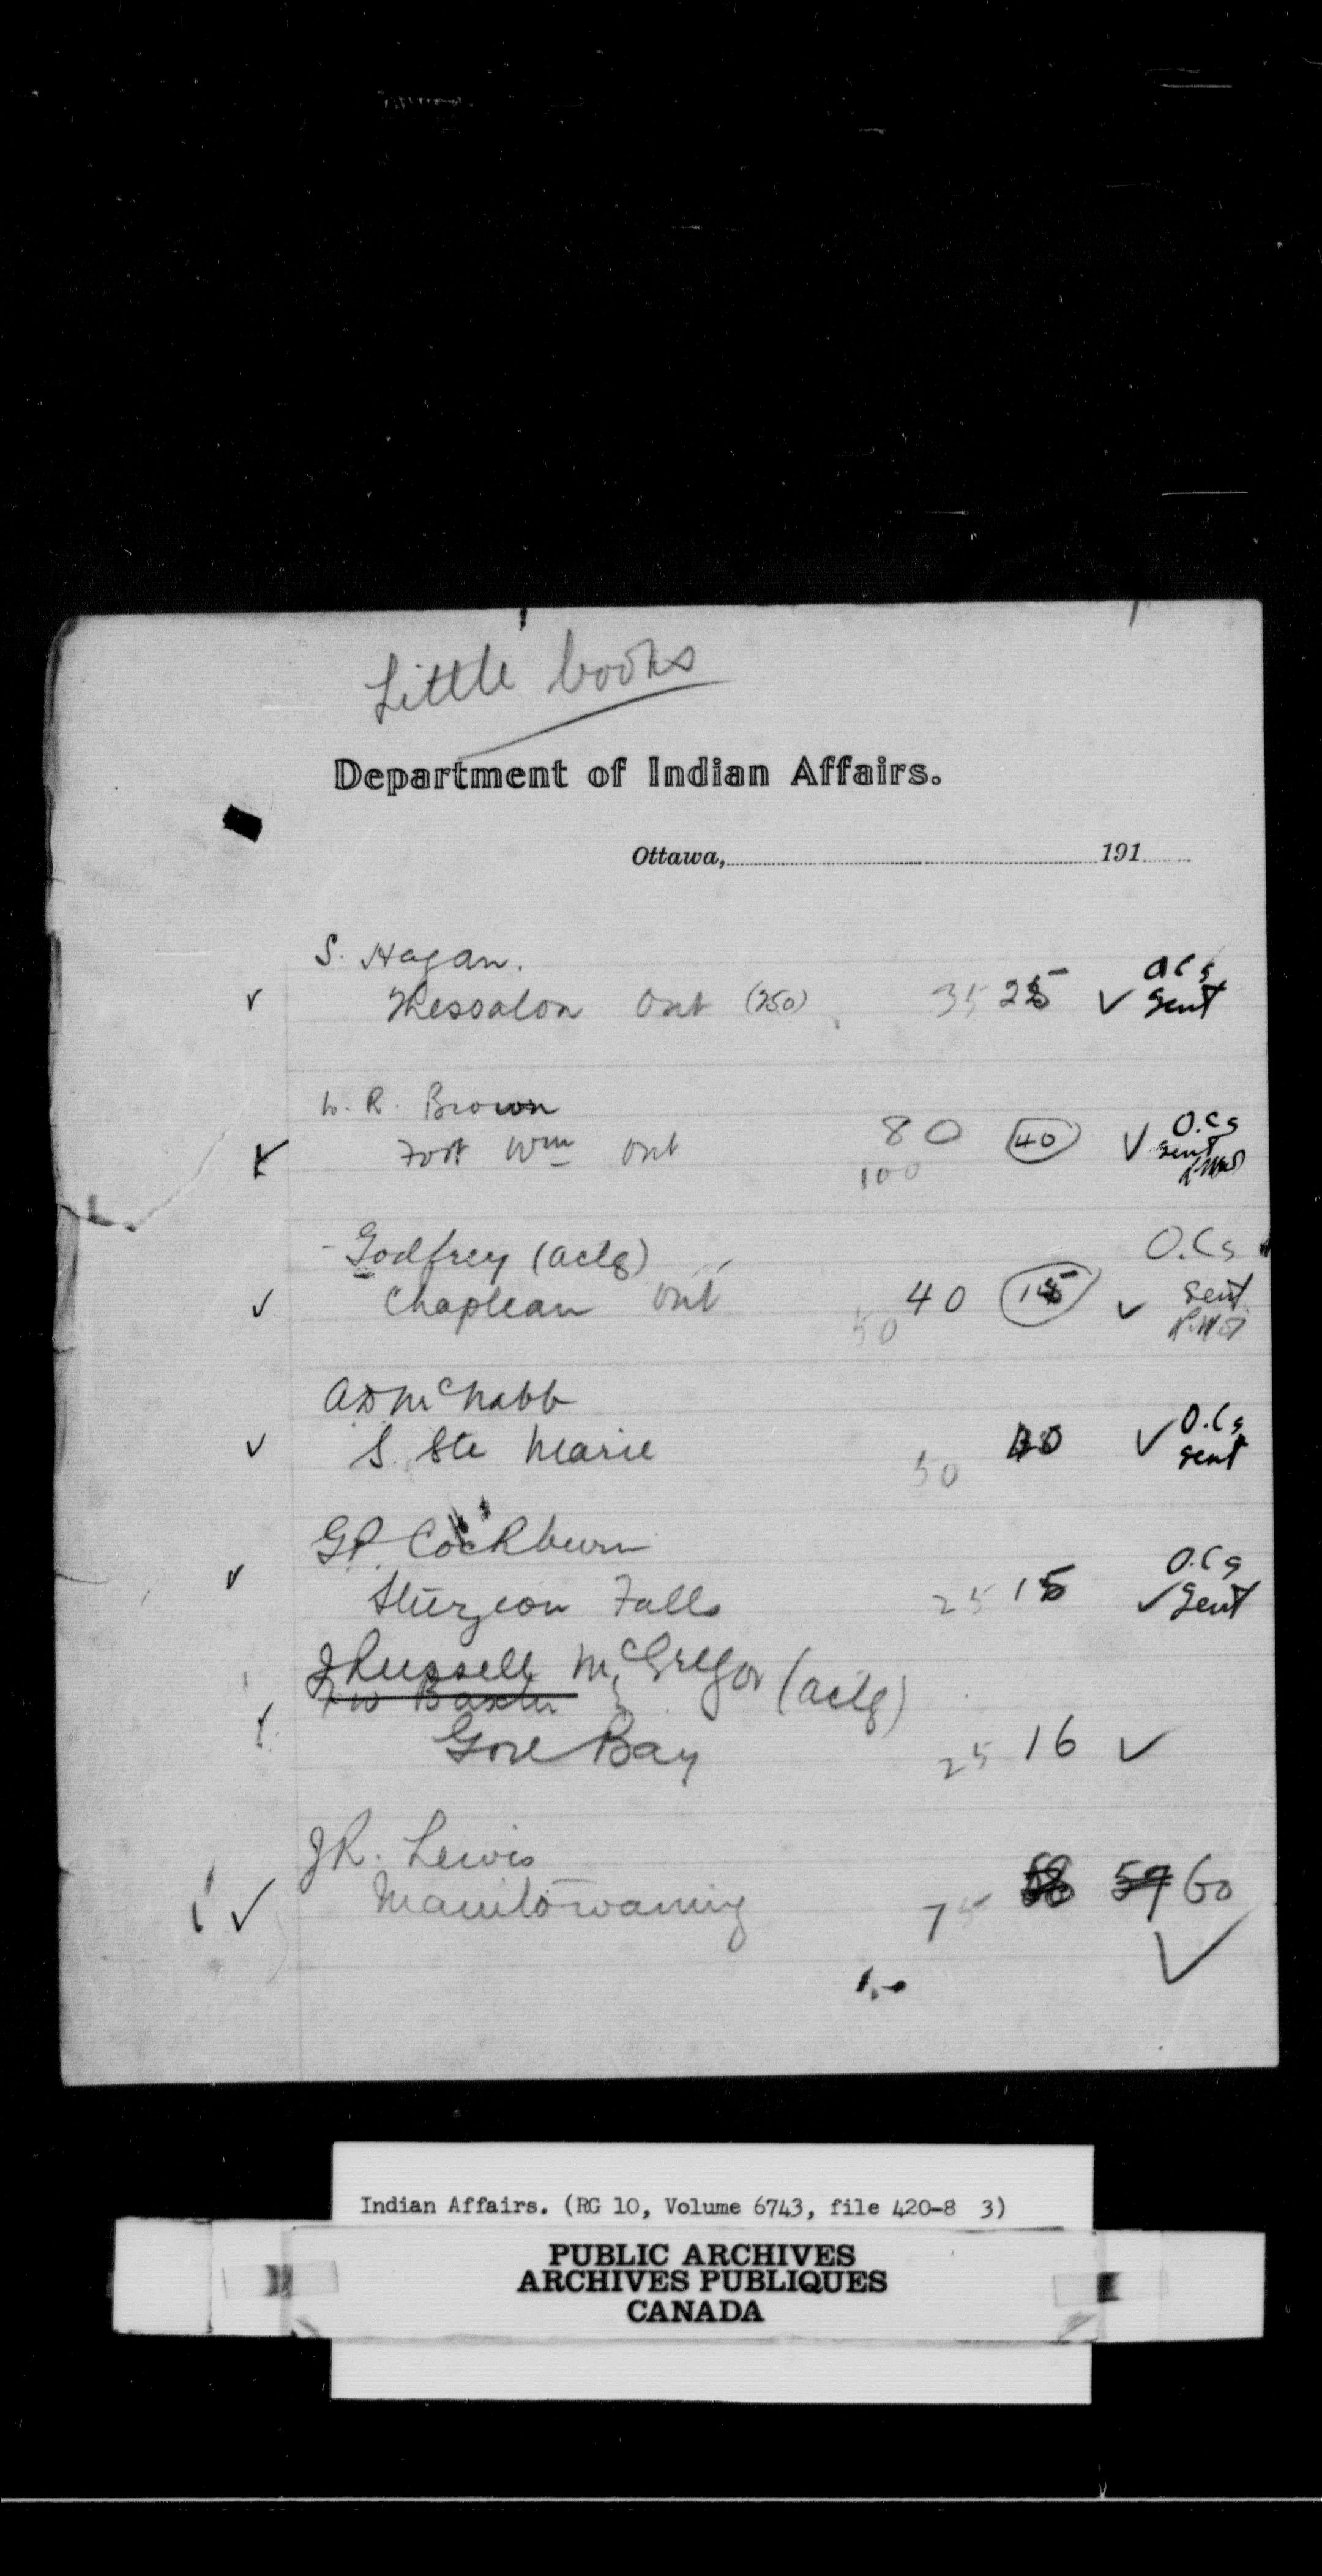 Little books
Department of Indian Affairs.
Ottawa, 191
S. Hagan.
Thessalon Ont (250) 35 25 ✓ O.Cs
sent
W. R. Brown
Fort Wm Ont 80 40 ✓ O.Cs
100 sent
Godfrey (actg) O.Cs
Chapleau Ont 40 15 ✓ sent
50
A D McNabb
S. Ste Marie 50 ✓ O.Cs
sent
G P. Cockburn
Sturgeon Falls 25 15 ✓ O.Cs
sent
J Russell McGregor (actg)
F W Baxter
Gore Bay 25 16 ✓
J R. Lewis
Manitowaning 75 59 60
✓
Indian Affairs. (RG 10, Volume 6743, file 420-8 3)
PUBLIC ARCHIVES
ARCHIVES PUBLIQUES
CANADA